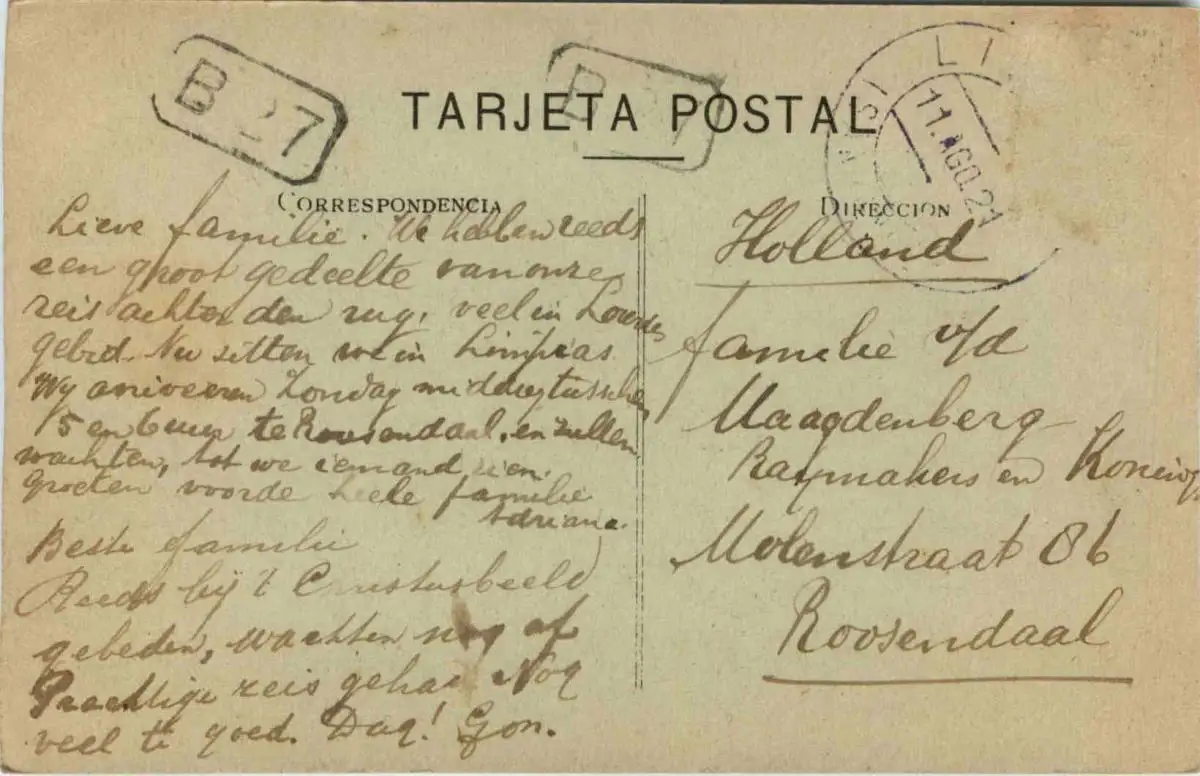 B 27
B 7
TARJETA POSTAL
LI
11.AGO.21
CORRESPONDENCIA
Lieve familie. We hebben reeds
een groot gedeelte van onze
reis achter den rug, veel in Lourdes
gebed. Nu zitten we in Limpias
Wy ariveeren Zondag middag tusschen
5 en 6 uur te Roosendaal, en zullen
wachten, tot we iemand zien.
Groeten voor de heele familie
Adriane.
Beste familie
Reeds bij 't Christusbeeld
gebeden, wachten nog af
Prachtige reis gehad Nog
veel te goed. Dag! Gon.
DIRECCION
Holland
familie v/d
Maagdenberg
Raymakers en Koning
Molenstraat 86
Roosendaal